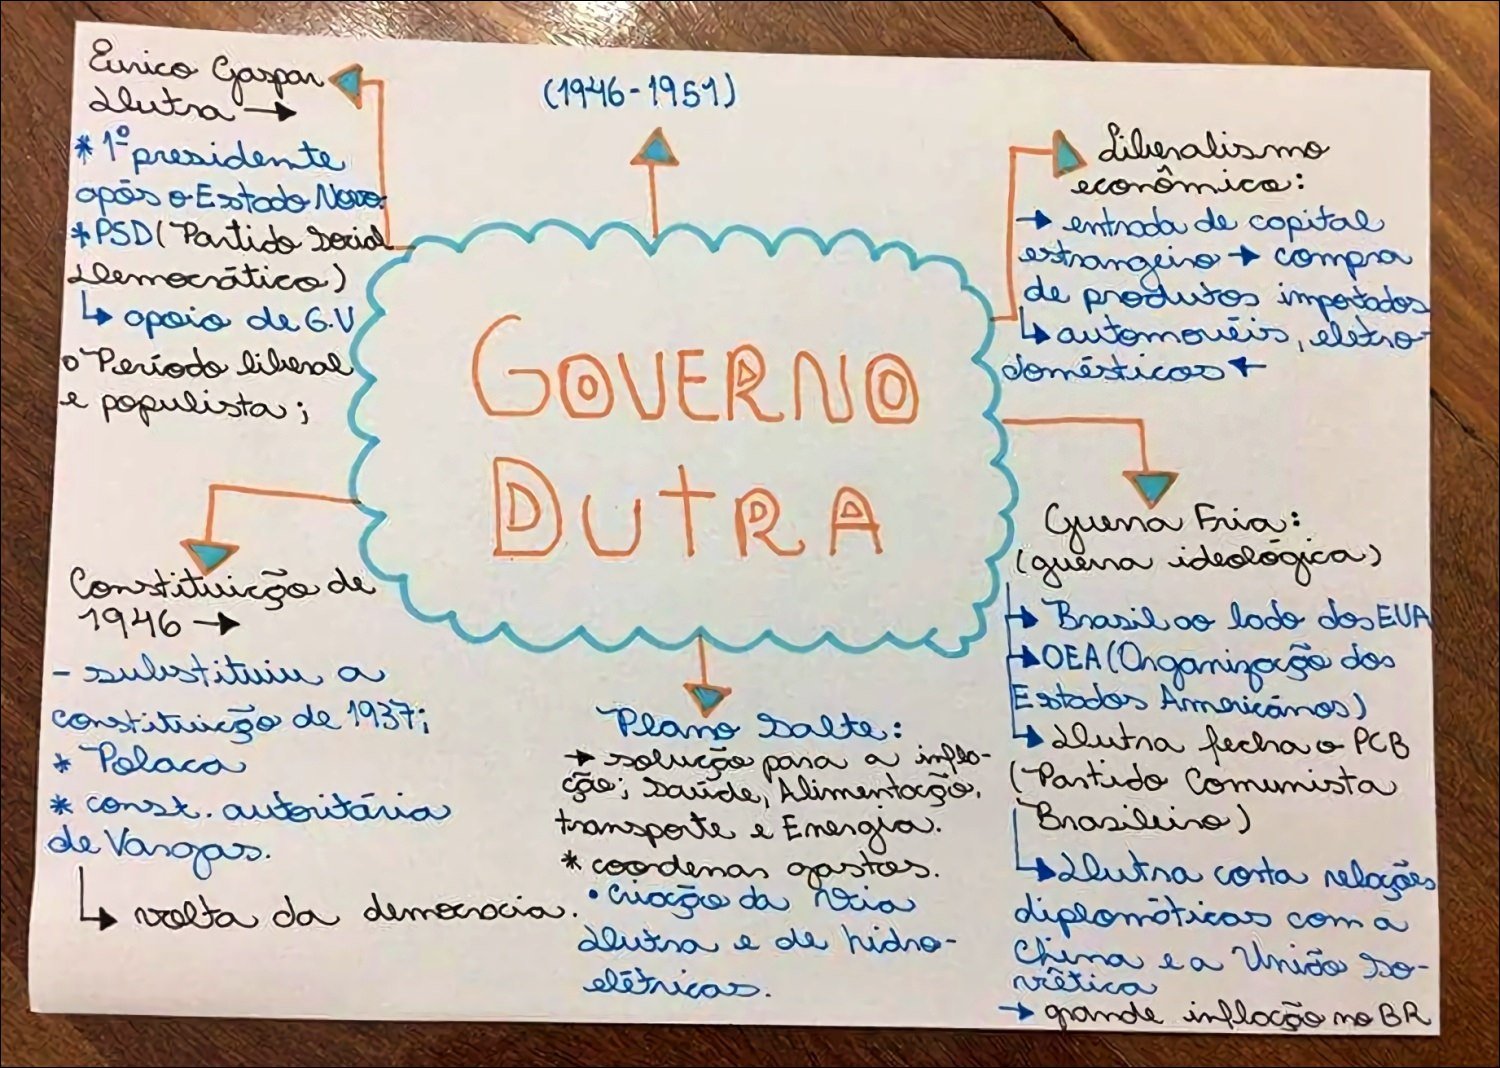 Eurico Gaspar
Dutra →
* 1º presidente
após o Estado Novo.
* PSD (Partido Social
Democrático)
↳ apoio de G.V
o Período liberal
e populista;
(1946-1951)
Liberalismo
econômico:
→ entrada de capital
estrangeiro → compra
de produtos importados
↳ automovéis, eletro-
domésticos ←
GOVERNO
DUTRA
Constituição de
1946 →
- substituiu a
constituição de 1937;
* Polaca
* const. autoritária
de Vargas.
↳ volta da democracia.
Plano Salte:
→ solução para a infla-
ção; Saúde, Alimentação,
transporte e Energia.
* coordenas gastos.
• Criação da Via
Dutra e de hidro-
elétricas.
Guerra Fria:
(guerra ideológica)
→ Brasil ao lado dos EUA
→ OEA (Organização dos
Estados Americanos)
→ Dutra fecha o PCB
(Partido Comunista
Brasileiro)
↳ Dutra corta relações
diplomáticas com a
China e a União So-
viêtica
→ grande inflação no BR